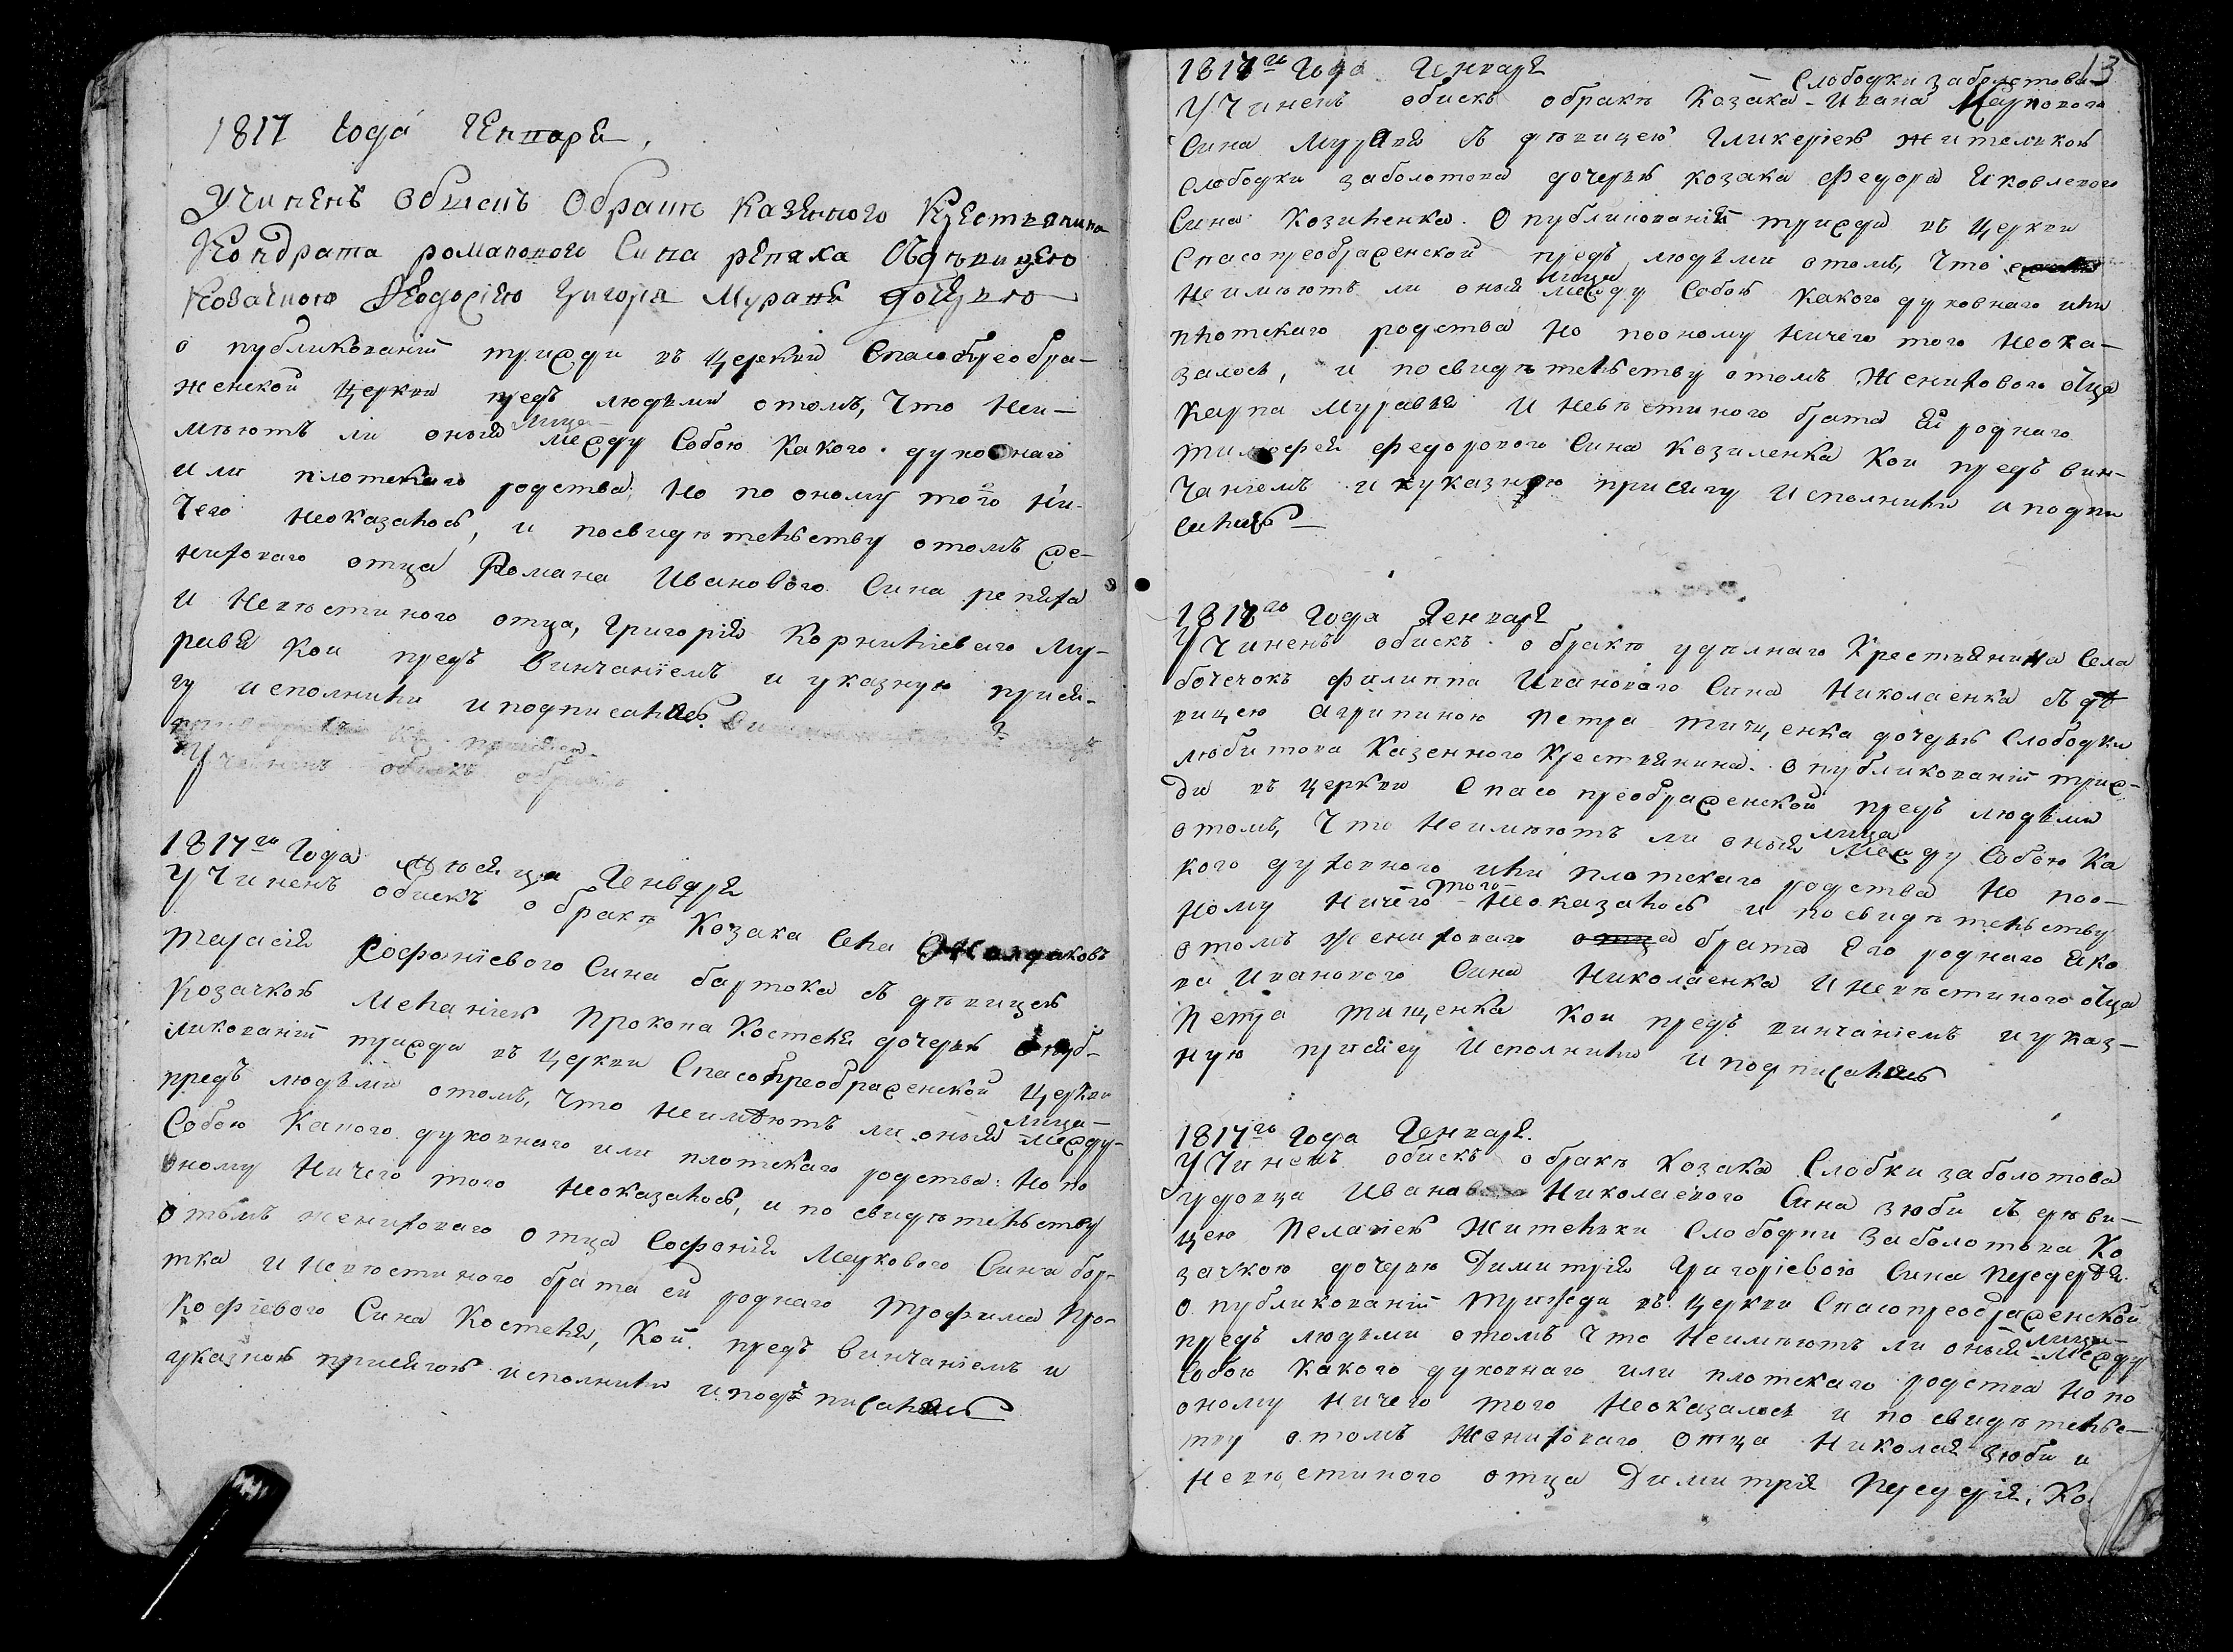 1817 года Генваря,
Учиненъ обискъ обракѣ казенного крестьянина
Кондрата романового Сина репяха Сдѣвицею
Козачкою Феодосіею Григорія Муравя дочерью
о публикованіи трижди въ церкви Спасопреобра-
женской церкви предъ людьми отомъ, Что Неи-
мѣютъ ли оныя лица между Собою какого духовнаго
или плотскаго родства, Но по оному того Ни-
чего Неоказалось, и посвидѣтельству отомъ же-
нихового отца Романа Иванового Сина репяха
и Невѣстиного отца, Григорія Корнилiевого Му-
равя кои предъ винчаніемъ и указную прися-
гу исполнили иподписались
Учиненъ обискъ обракѣ
1817го Года мѣсяца Генваря
Учиненъ обискъ обракѣ Козака Села
Тарасія Софоніевого Сина бартока съ дѣвицею
Козачкою Меланіею Прокопа Костеля дочерью опуб-
ликованіи трижди въ церкви Спасопреображенской церкви
предъ людьми отомъ, Что Неимѣютъ ли оныя лица между
Собою какого духовнаго или плотскаго родства: Но по
оному Ничего того Неоказалось, и по свидѣтельству
отомъ женихового отца Софонія Маркового Сина бар-
тка и Невѣстиного брата ей роднаго Трофима Про-
кофіевого Сина Костеля, Кои предъ винчаніемъ и
указною присягою исполнили иподъписались
13
1817го Года Генваря
Слободки заболотова
Учиненъ обискъ обракѣ Козака Ивана Карпового
Сина Муравя съ дѣвицею Гликеріею жителькою
Слободки заболотова дочерью козака Федора Яковлевого
Сина Козиленка. Опубликованія трижди въ церкви
Спасопреображенской предъ людьми отомъ, Что
Неимѣютъ ли оныя лица между Собою какого духовнаго или
плотскаго родства Но пооному Ничего того Неока-
залось, и посвидѣтельству отомъ Женихового отца
Карпа Муравя и Невѣстиного брата Ей роднаго
Тимофея Федорового Сина Козиленка Кои предъ вин-
чаніемъ и указную присягу Исполнили иподпи
сались
1817го Года Генваря
Учиненъ обискъ обракѣ удѣлнаго Крестьянина Села
бочечокъ филиппа Иванового Сина Николаенка съ дѣ
вицею Агрипиною Петра тищенка дочерью Слободки
любитова Казенного Крестьянина. опубликованіи триж-
ди въ церкви Спасо преображенской предъ людьми
отомъ, Что Неимѣютъ ли оныя лица между Собою Ка
кого духовного или плотскаго родства Но поо-
ному Ничего того Неоказалось и посвидѣтельству
отомъ Женихового отца брата Его роднаго Яко
ва Иванового Сина Николаенка и Невѣстиного отца
Петра тищенка Кои предъ винчаніемъ и указ-
ную присягу Исполнили иподписались
1817го Года Генваря.
Учиненъ обискъ обракѣ Козака Слобки заболотова
удовца Ивана Николаевого Сина зюби съ дѣви-
цею Пелагіею Жительки Слободки Заболотова Ко
зачкою дочерью Димитрія Григоріевого Сина Передерѣя.
о публикованіи трижди въ церкви Спасопреображенской
предъ людьми отомъ Что Неимѣютъ ли оныя лица между
Собою Какого духовнаго или плотскаго родства Но по
оному Ничего того Неоказалось и по свидѣтельс-
тву отомъ Женихового Отца Николая Зюби и
Невѣстиного отца Димитрія Передерія, Ко